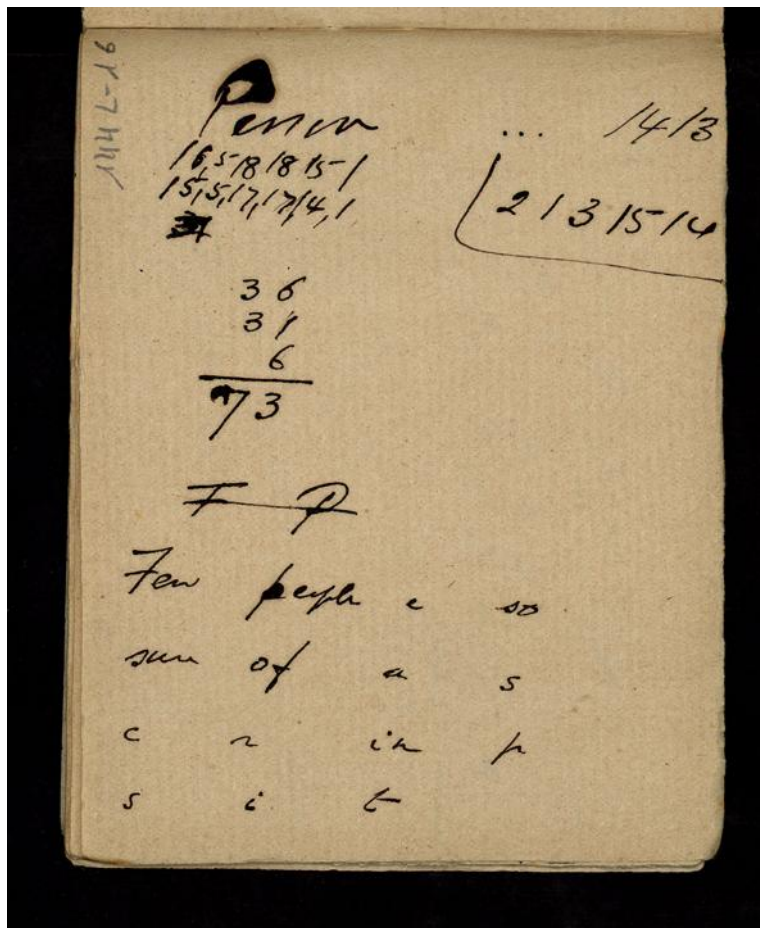 Person
... 1413
16,5 18 18 15 1
15,5,17,17,14,1
2 1 3 15 14
36
31
6
73
F P
Few people e so
sure of a s
c r in p
s i t